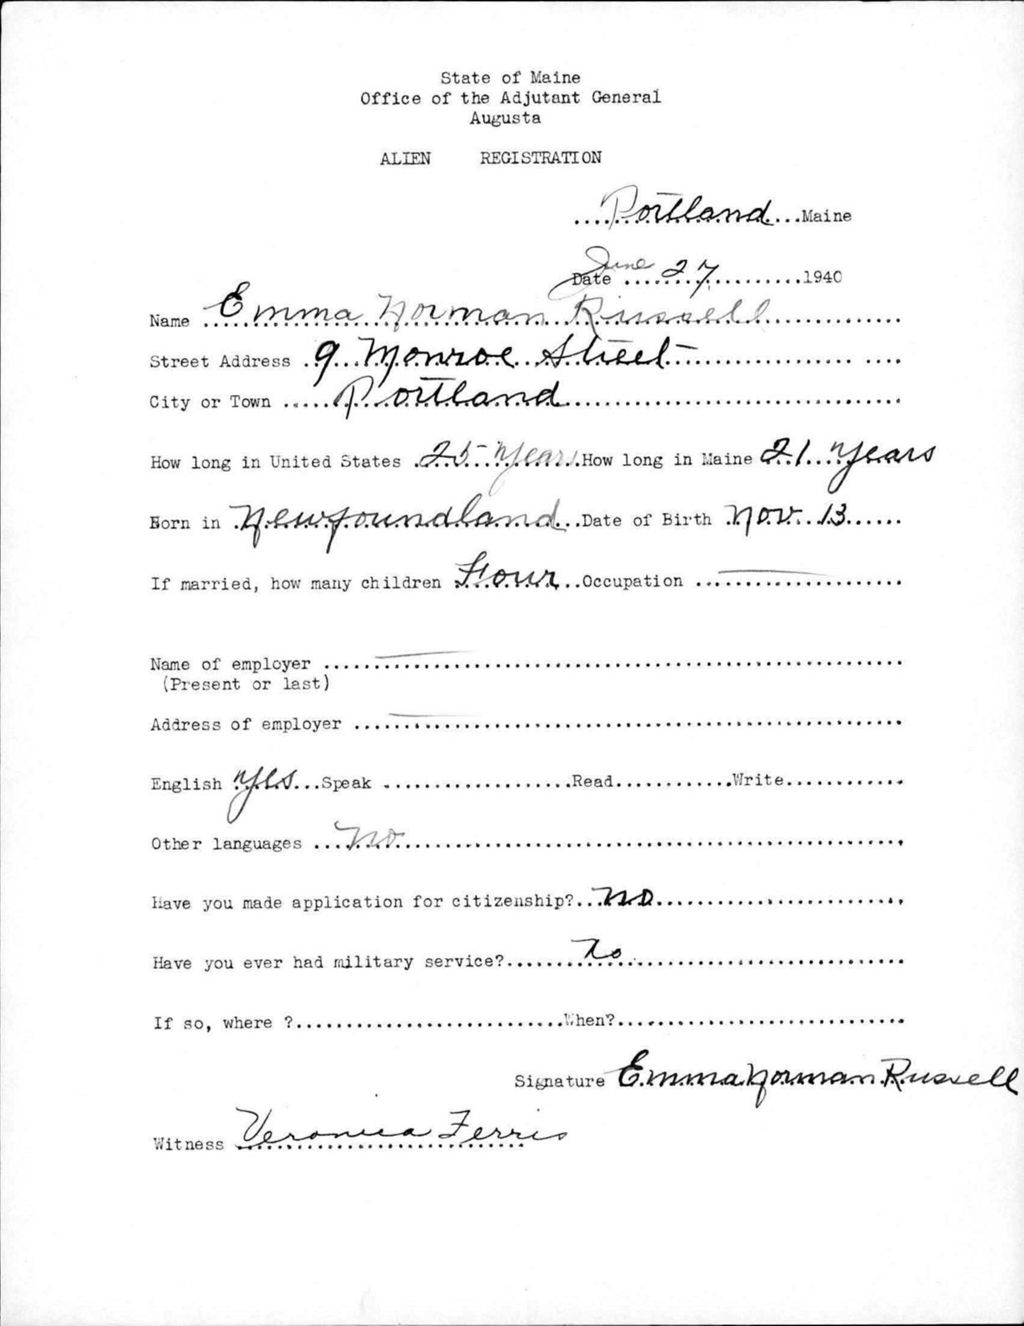 State of Maine
Office of the Adjutant General
Augusta
ALIEN REGISTRATION
....Portland...Maine
Date June 27..........1940
Name Emma Norman Russell
Street Address 9 Monroe Street
City or Town Portland
How long in United States 25 Years How long in Maine 21 years
Born in Newfoundland Date of Birth Nov. 13
If married, how many children Four Occupation —
Name of employer —
(Present or last)
Address of employer —
English Yes Speak ........ Read ........ Write ........
Other languages No
Have you made application for citizenship? No
Have you ever had military service? No
If so, where ? ........ When? ........
Signature Emma Norman Russell
Witness Veronica Ferris